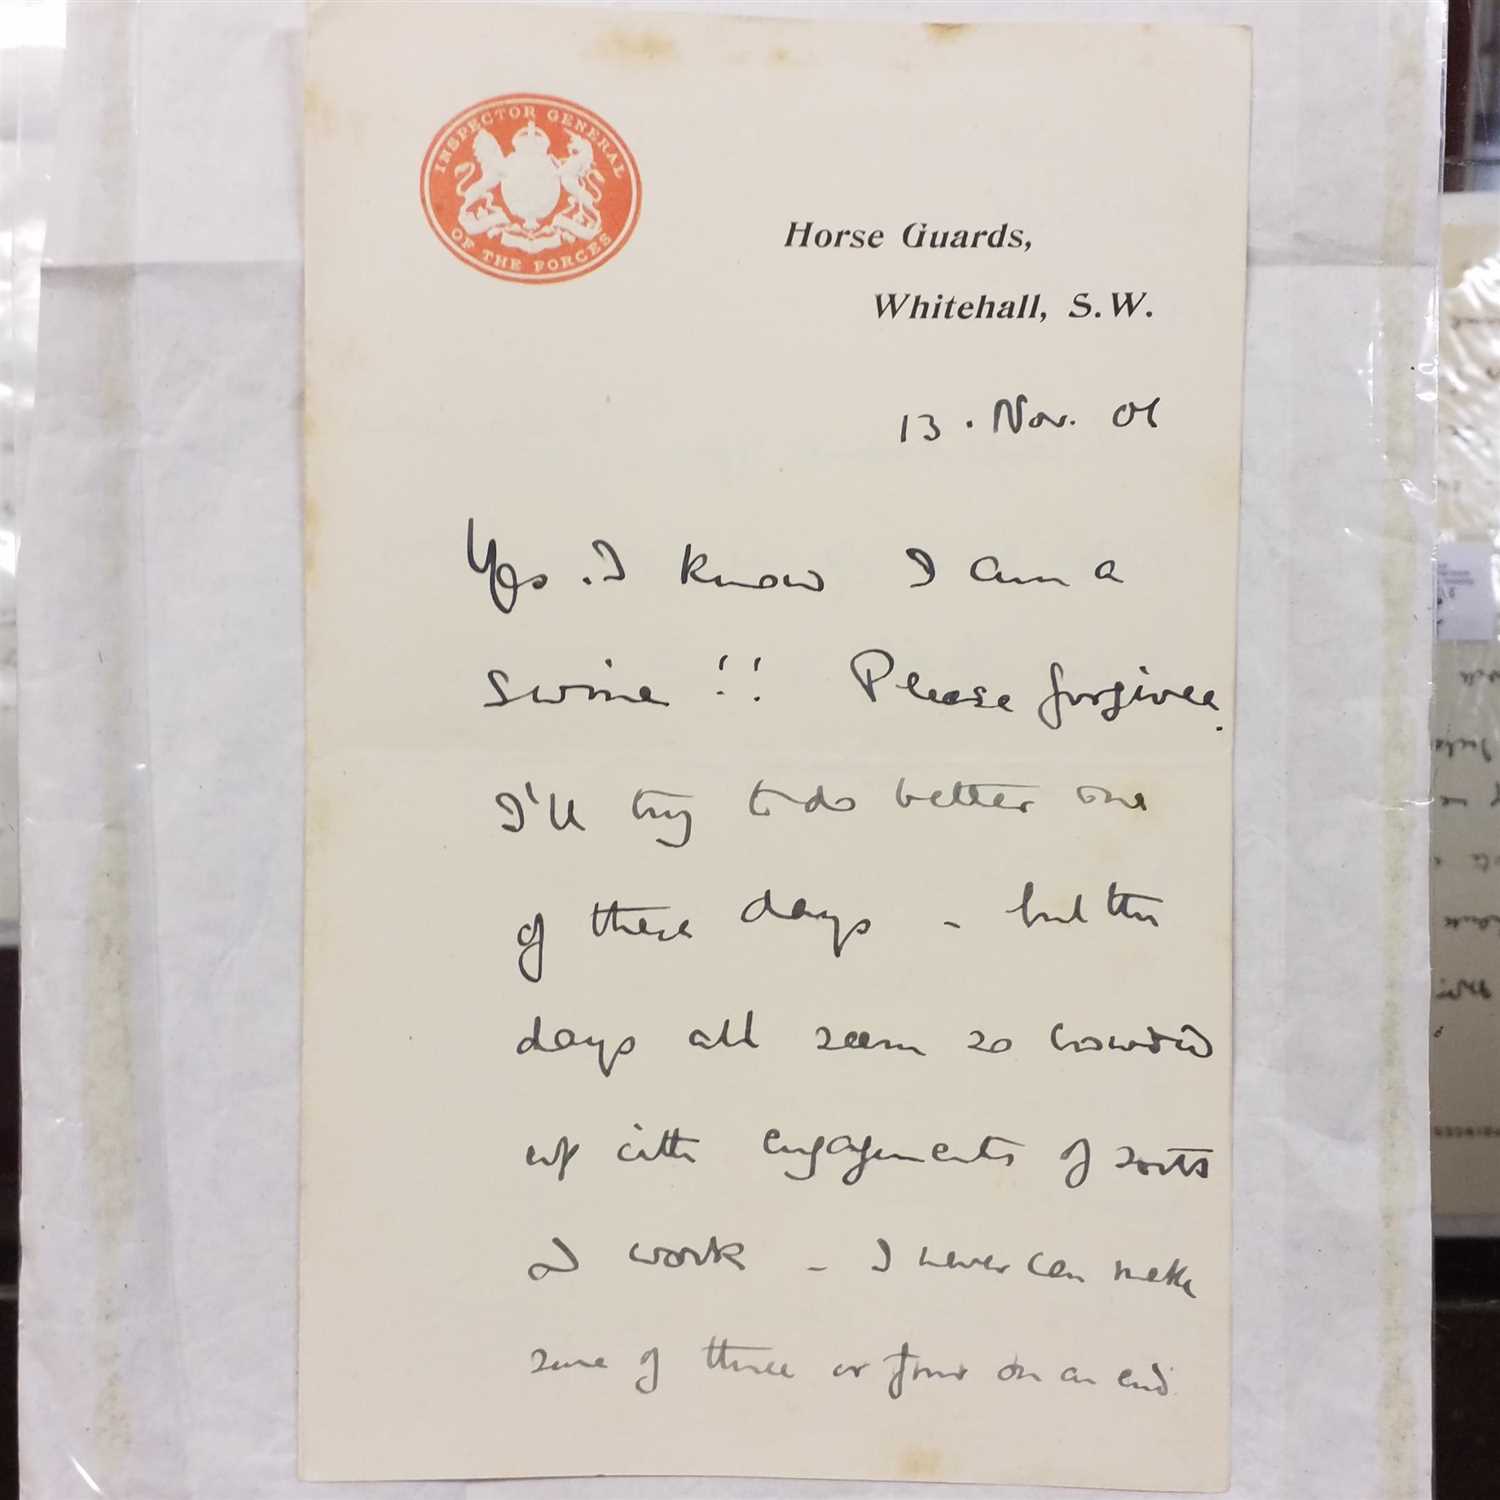 INSPECTOR GENERAL
OF THE FORCES
Horse Guards,
Whitehall, S.W.
13. Nov. 06
Yes. I know I am a
swine!! Please forgive.
I'll try to do better one
of these days - but the
days all seem so crowded
up with engagements of sorts
& work - I never can make
sure of three or four on an end